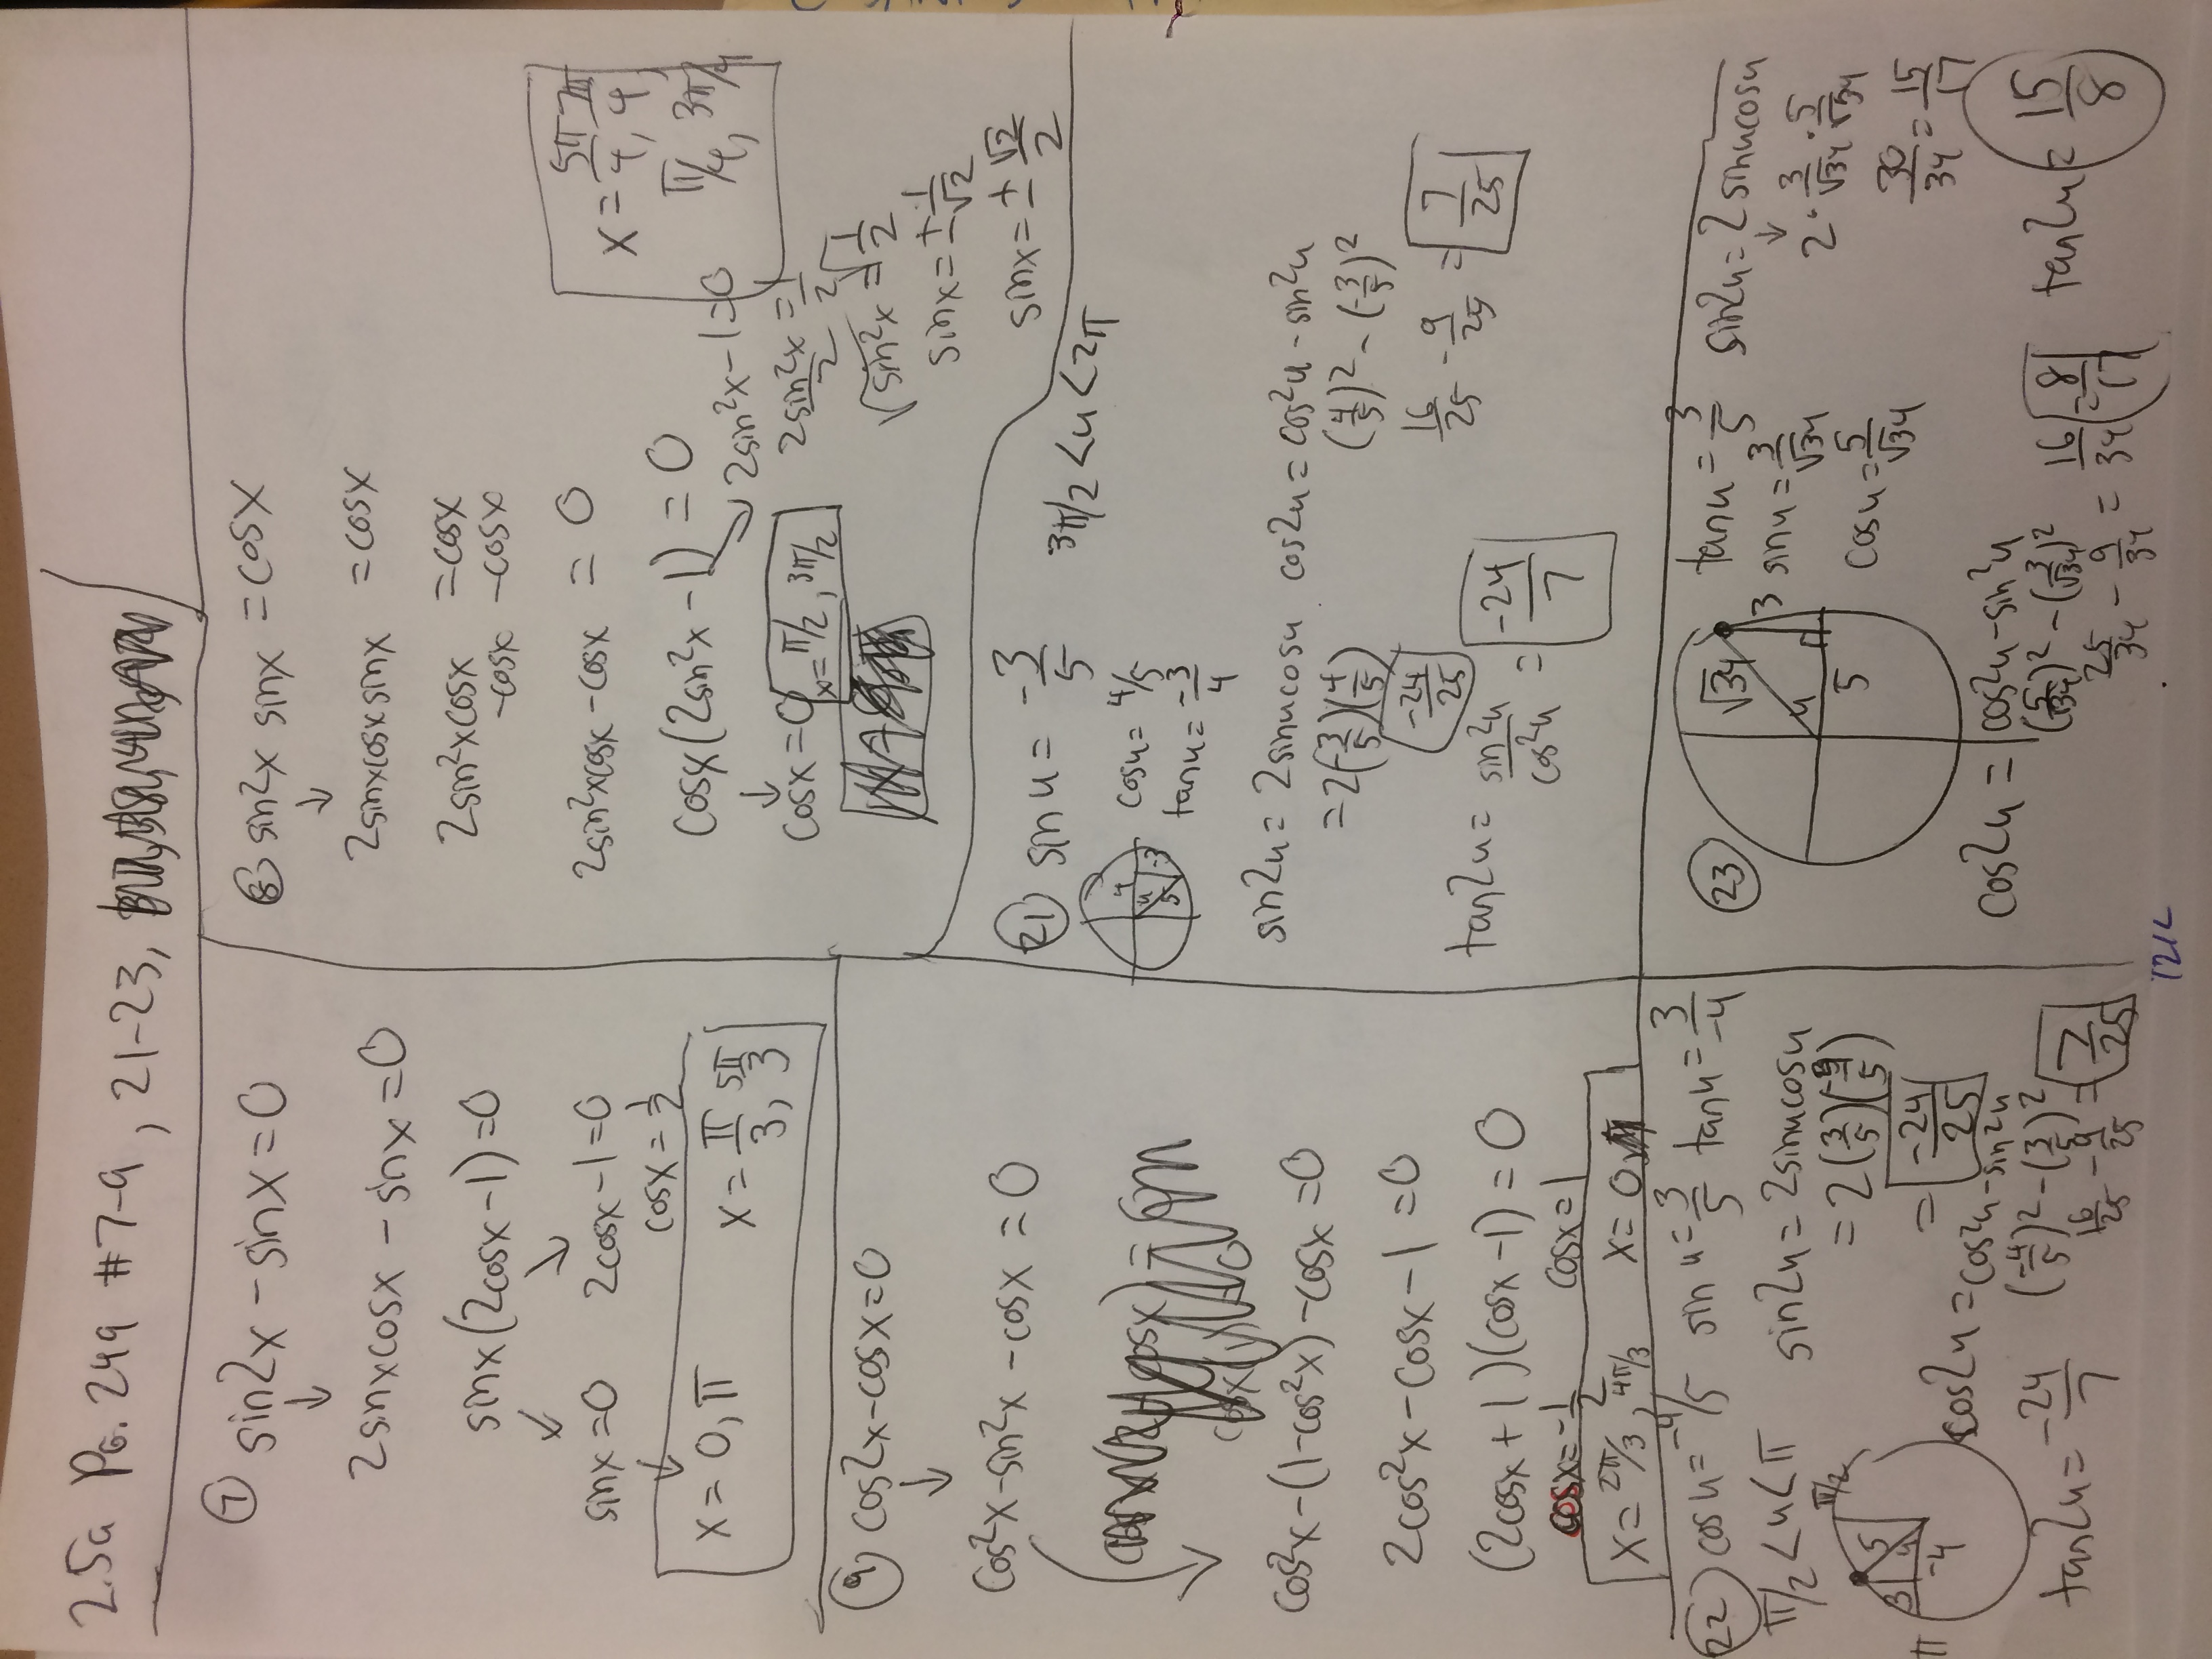 2.5a Pg. 249 #7-9, 21-23,
⑦ sin2x - sinx = 0
2sinxcosx - sinx = 0
sinx(2cosx - 1) = 0
sinx = 0 2cosx - 1 = 0
cosx = 1/2
x = 0, π x = π/3, 5π/3
⑧ sin2x sinx = cosx
2sinxcosxsinx = cosx
2sin²xcosx = cosx
-cosx -cosx
2sin²xcosx - cosx = 0
cosx(2sin²x - 1) = 0
cosx = 0 2sin²x - 1 = 0
x = π/2, 3π/2
2sin²x/2 = 1/2
√sin²x = √1/2
sinx = ± 1/√2
sinx = ± √2/2
x = 5π/4, 7π/4,
π/4, 3π/4
⑨ cos2x - cosx = 0
cos²x - sin²x - cosx = 0
cos²x - (1 - cos²x) - cosx = 0
2cos²x - cosx - 1 = 0
(2cosx + 1)(cosx - 1) = 0
cosx = -1/2 cosx = 1
x = 2π/3, 4π/3 x = 0
㉑ sin u = -3/5 3π/2 < u < 2π
4
u
5
-3
cosu = 4/5
tanu = -3/4
sin2u = 2sinucosu
= 2(-3/5)(4/5)
-24/25
cos2u = cos²u - sin²u
(4/5)² - (-3/5)²
16/25 - 9/25 = 7/25
tan2u = sin2u/cos2u = -24/7
㉒ cos u = -4/5 sin u = 3/5 tanu = 3/-4
π/2 < u < π
π/2
π
3
5
u
-4
sin2u = 2sinucosu
= 2(3/5)(-4/5)
= -24/25
cos2u = cos²u - sin²u
(-4/5)² - (3/5)²
16/25 - 9/25 = 7/25
tan2u = -24/7
㉓ tanu = 3/5
√34
3
u
5
sinu = 3/√34
cosu = 5/√34
sin2u = 2sinucosu
2 · 3/√34 · 5/√34
30/34 = 15/17
cos2u = cos²u - sin²u
(5/√34)² - (3/√34)²
25/34 - 9/34 = 16/34 = 8/17
tan2u = 15/8